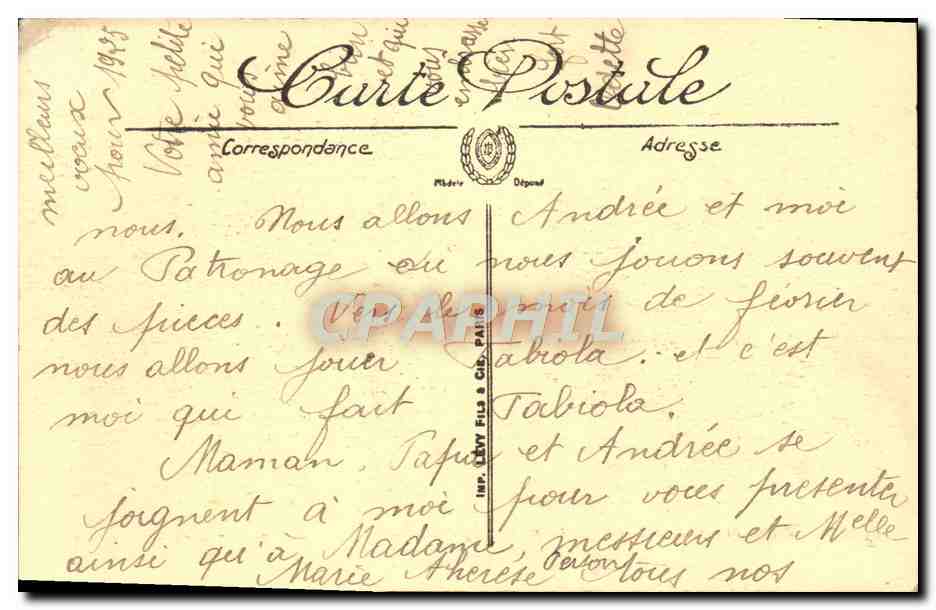 Carte Postale
Correspondance
Adresse
Modèle Déposé
nous. Nous allons Andrée et moi
au Patronage ou nous jouons souvent
des pieces. Vers le mois de février
nous allons jouer Fabiola. et c'est
moi qui fait Fabiola.
Maman, Papa et Andrée se
joignent à moi pour vous presenter
ainsi qu'à Madame, messieurs et Melle
Marie Therese tous nos
meilleurs
vœux
pour 1925
Votre petite
amie qui
vous
aime
bien
et qui
vous
embrasse
IMP. LÉVY FILS & CIE, PARIS
CPAPHIL